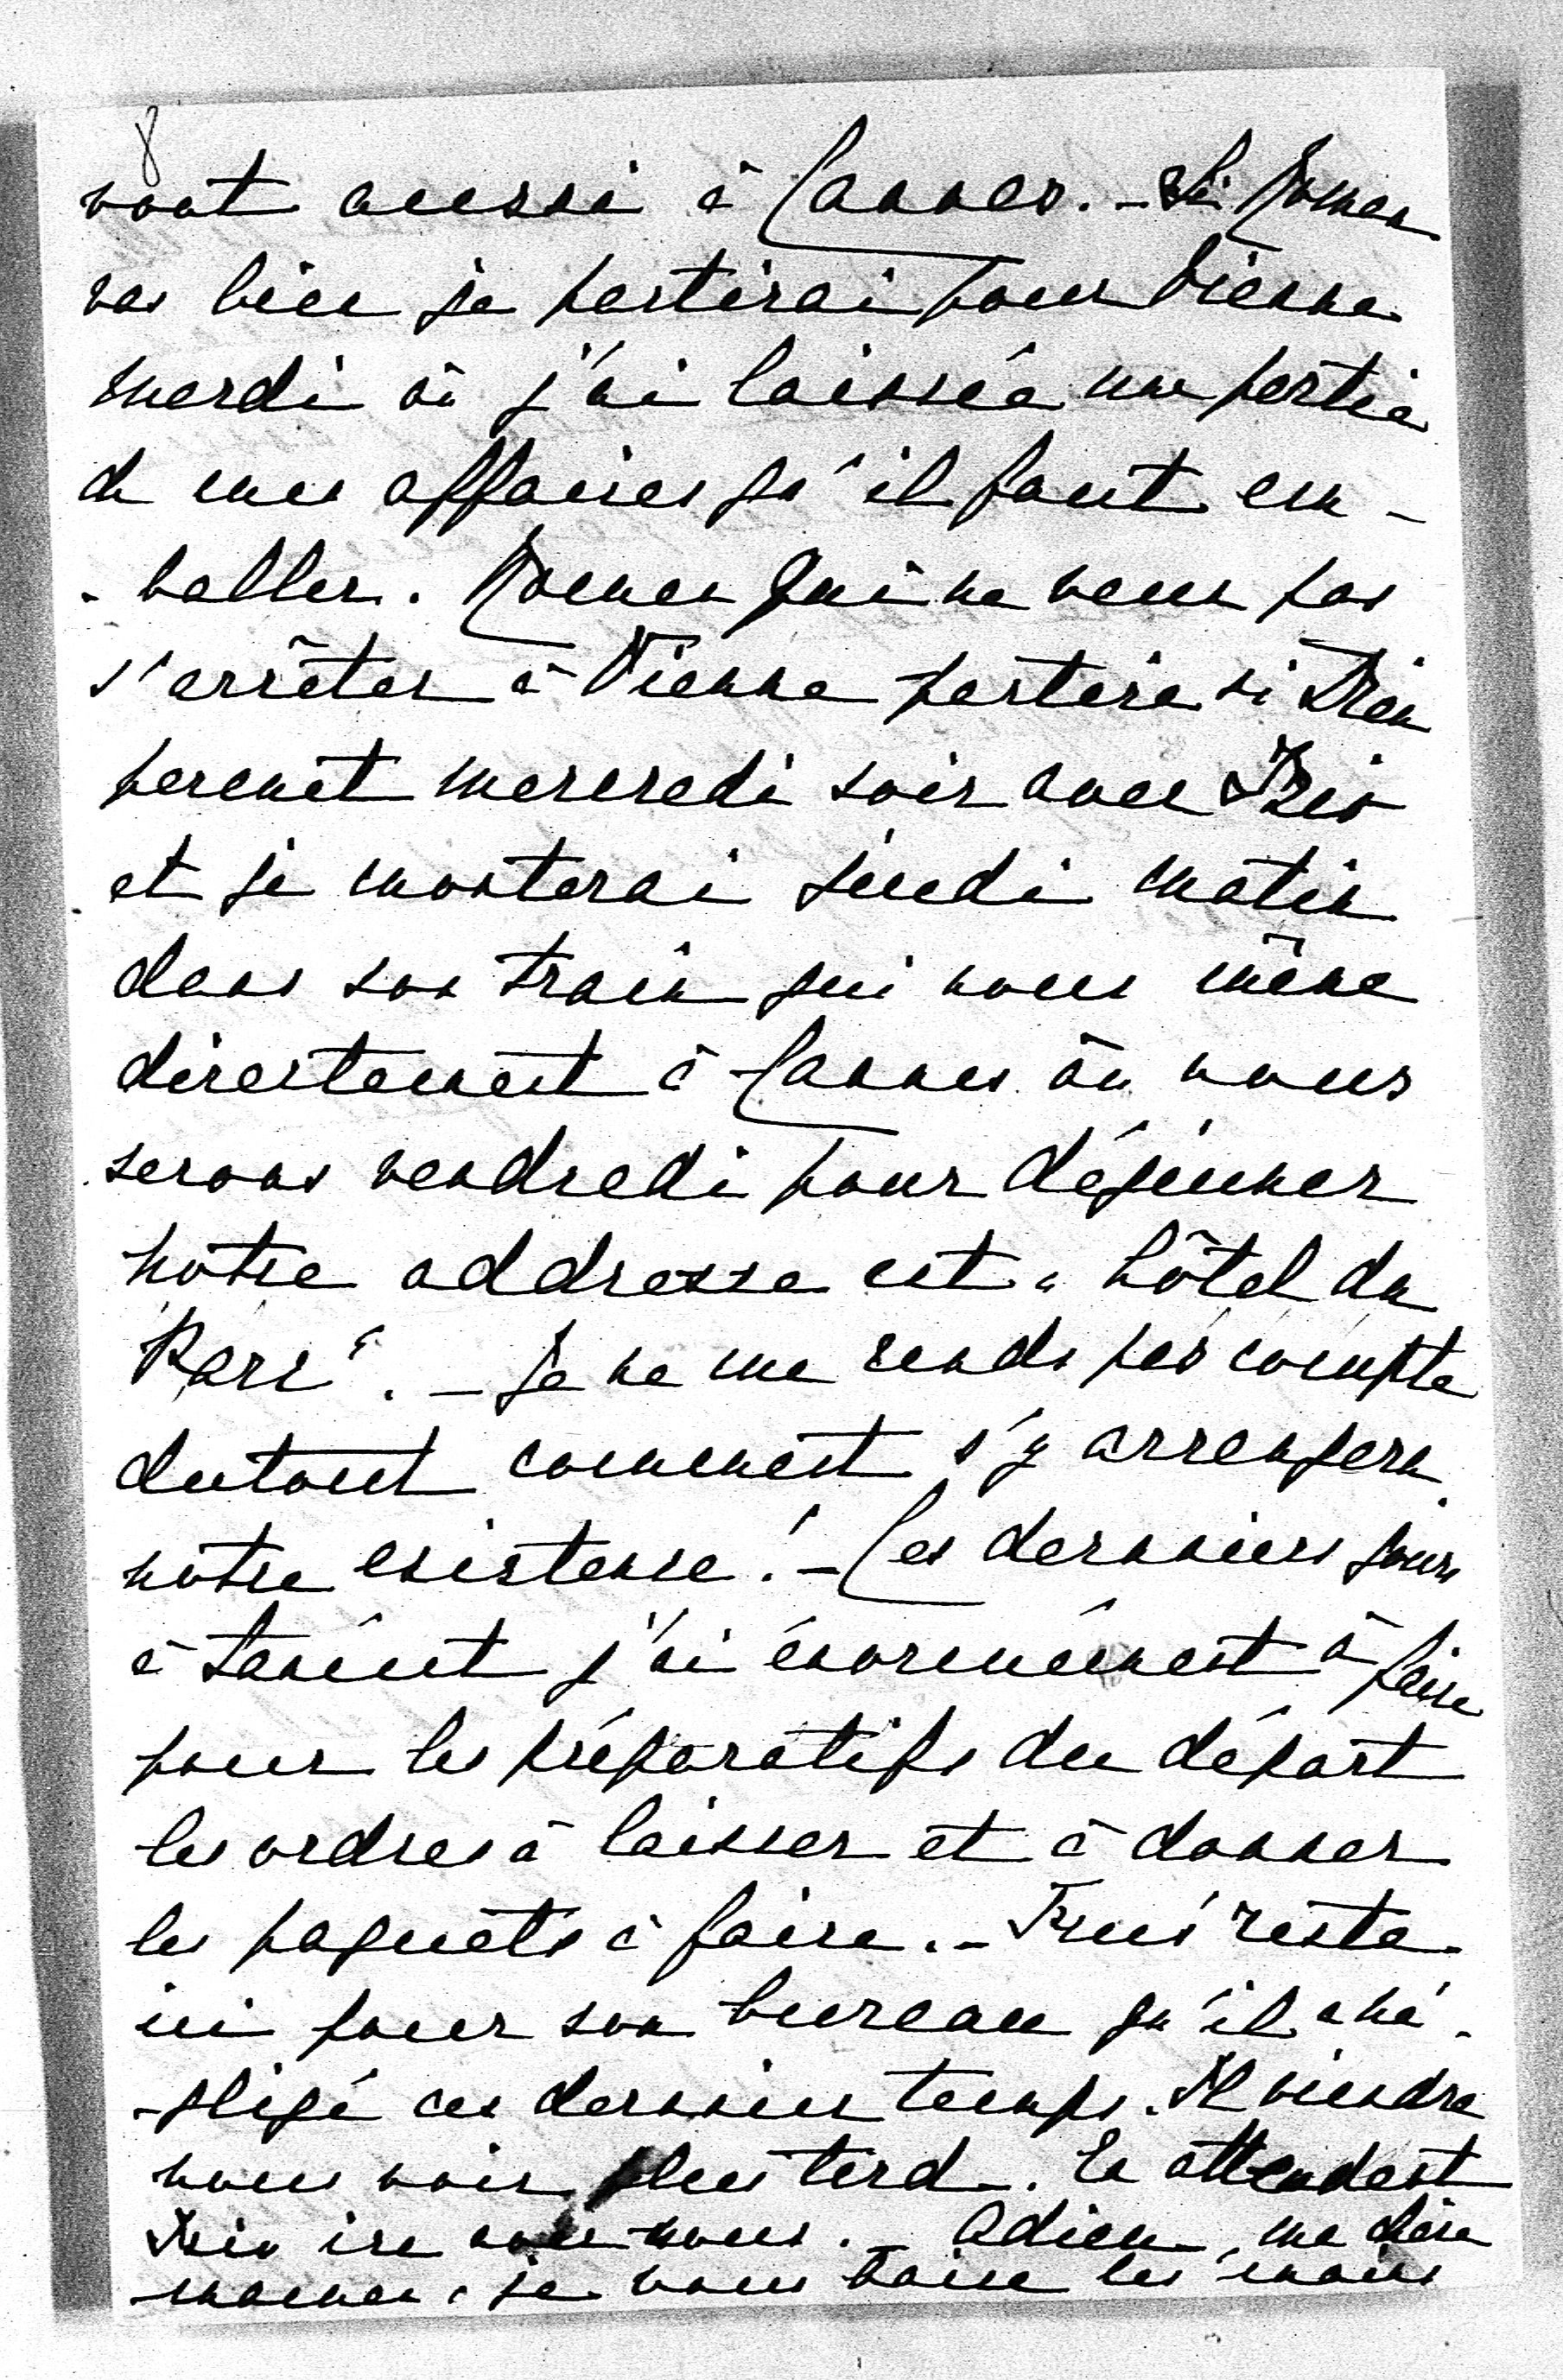 8
vont aussi à Cannes. – Si Roman
vas bien je partirai pour Vienne
mardi où j'ai laissée une partie
de mes affaires qu'il faut em-
-baller. Roman qui ne veux pas
s'arrêter à Vienne partira si Dieu
permet mercredi soir avec Izio
et je monterai jeudi matin
dans son train qui nous mène
directement à Cannes où nous
serons vendredi pour déjeuner
notre addresse est „ hôtel du
Parc". – Je ne me rends pas compte
dutout comment s'y arrangera
notre existence! – Ces derniers jours
à Łańcut j'ai énormément à faire
pour les préparatifs du départ
les ordres à laisser et à donner
les paquets à faire. – reste
ici pour son bureau qu'il a né-
-gligé ces dernier temps. Il viendra
nous voir plus tard. En attendant
Izio ira avec nous. – Adieu, ma chère
maman, je vous baise les mains